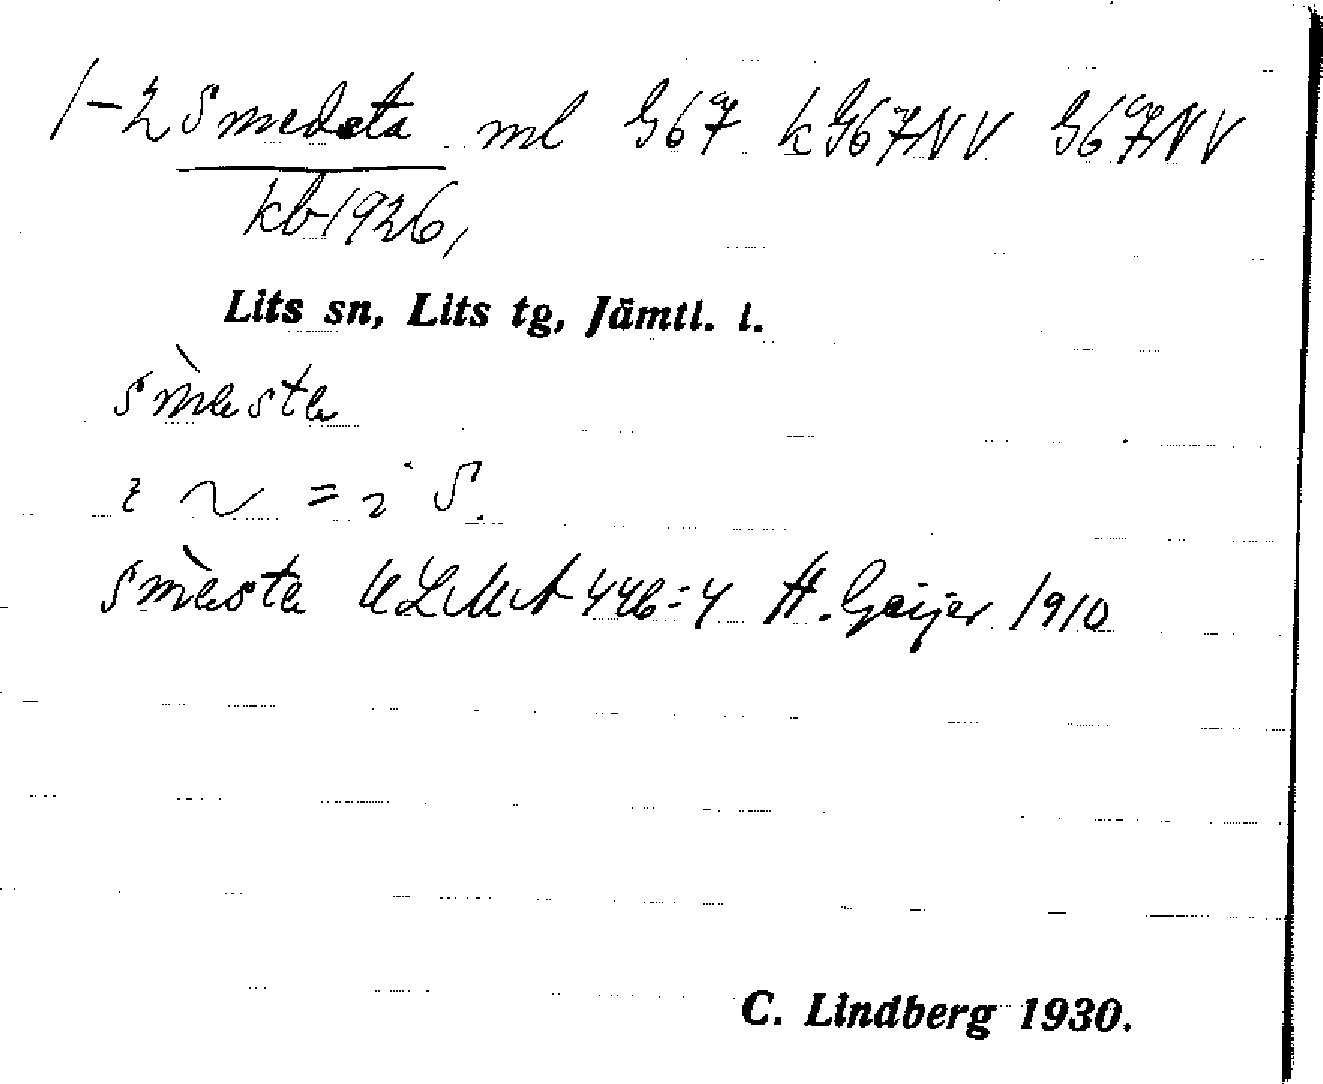 1-2 Smedsta ml G67 kG67NV G67NV
kb1926,
Lits sn, Lits tg, Jämtl. l.
smæ̀sta
i ~ = i S.
smæ̀sta ULMA 446:4 H. Geijer 1910
C. Lindberg 1930.